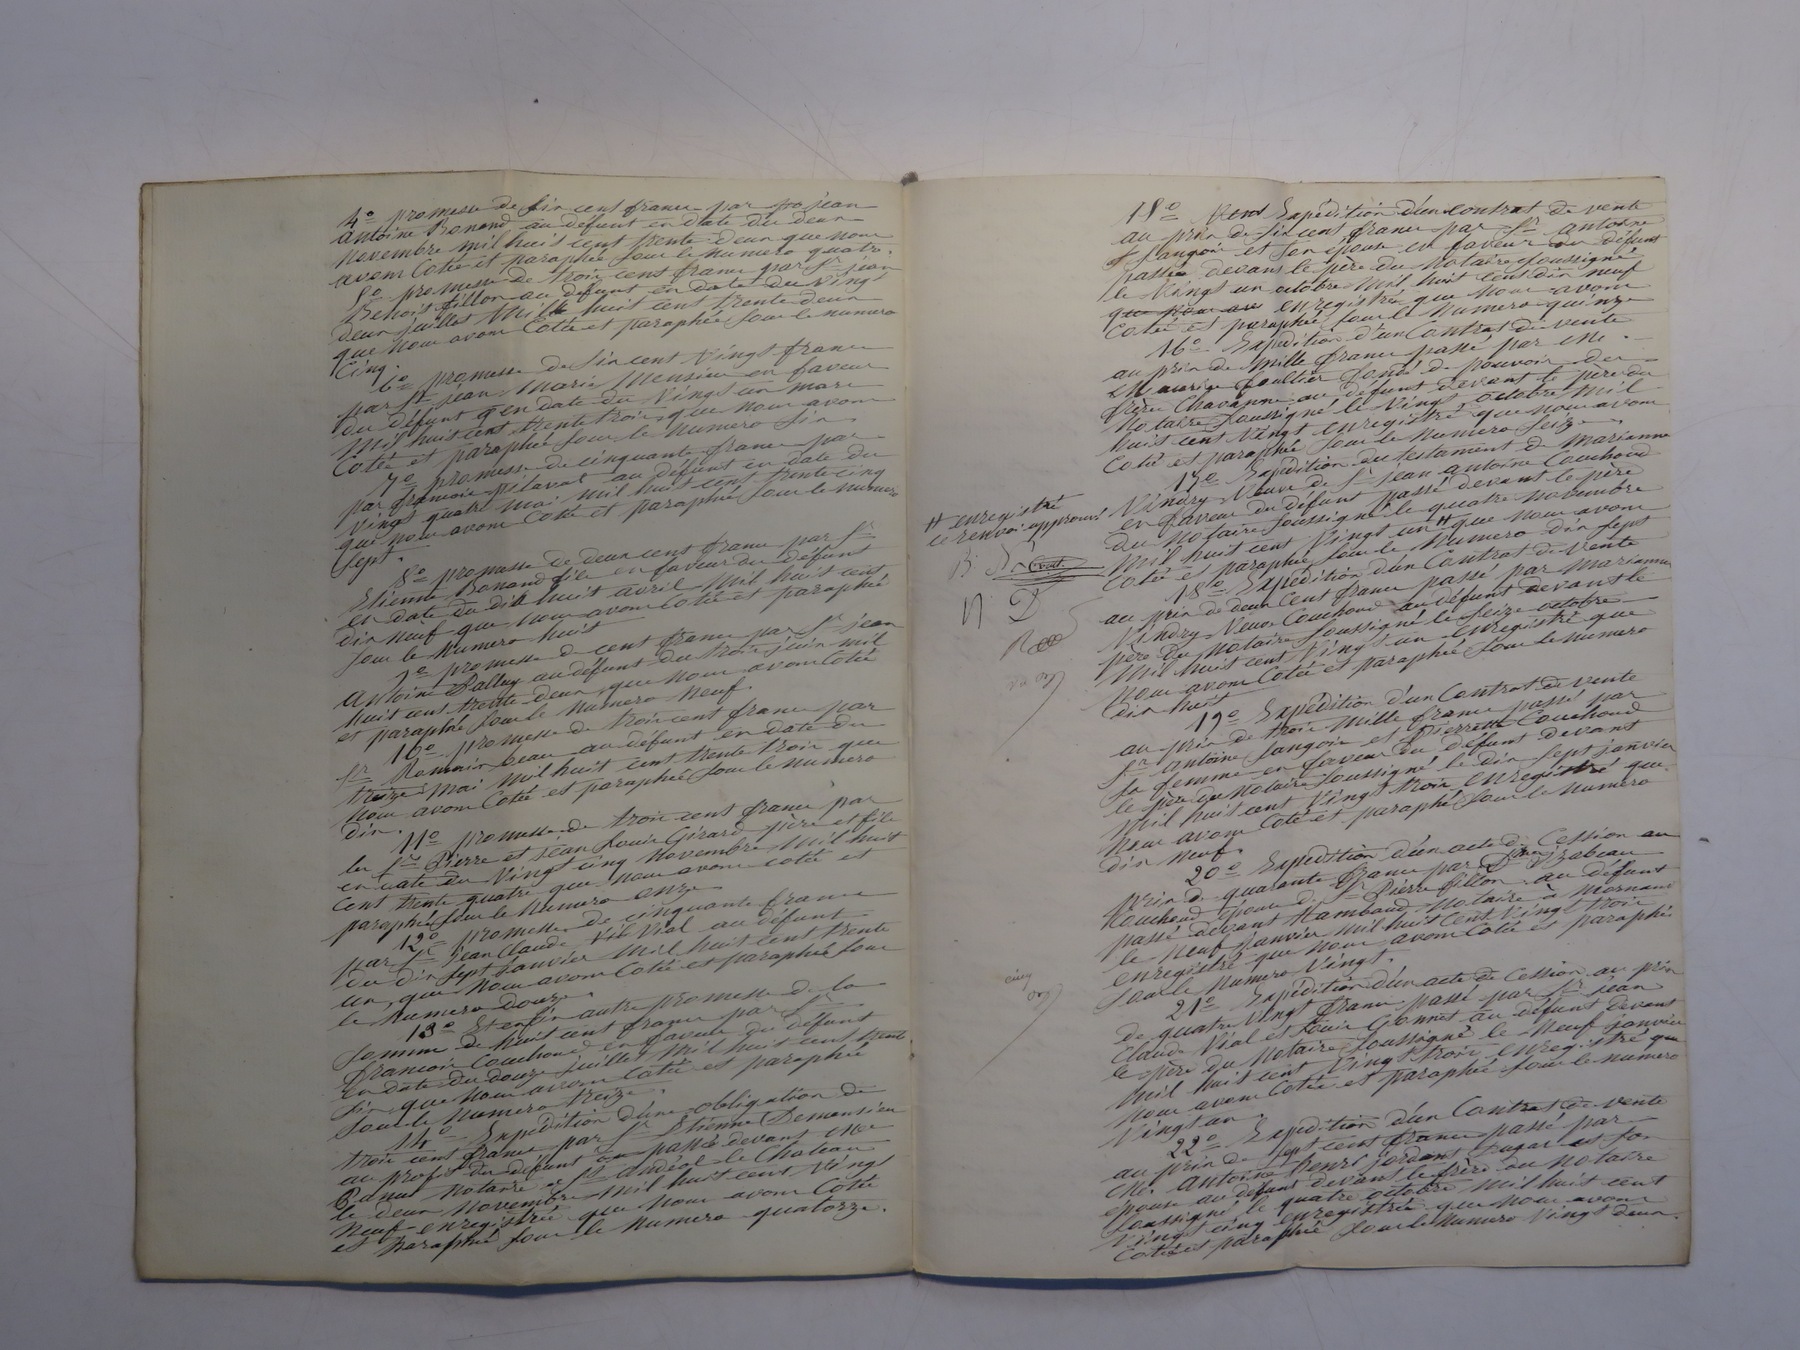 4º promesse de six cent francs par jean
Antoine Bonand au défunt en date du deux
Novembre mil huit cent trente deux que nous
avons Cotée et paraphée sous le numero quatre.
5º promesse de trois cent francs par Sr jean
Benoit fillon au défunt en date du vingt
deux juillet Mille huit cent trente deux
que nous avons Cotée et paraphée sous le numero
Cinq.
6º promesse de six cent vingt francs
par Sr jean Marie en faveur
du défunt en date du vingt un mars
Mil huit cent trente trois, que nous avons
Cotée et paraphée sous le numero six
7º promesse de cinquante francs par
par françois pilaval au défunt en date du
vingt quatre mai mil huit cent trente cinq
que nous avons Cotée et paraphée sous le numero
sept.
8º promesse de deux cent francs par Sr
Etienne Bonand fils en faveur du défunt
en date du dix huit avril mil huit cent
dix neuf que nous avons Cotée et paraphée
sous le Numero huit
9º promesse de cent francs par Sr jean
Antoine au défunt du trois juin mil
huit cent trente deux, que nous avons Cotée
et paraphé sous le numero Neuf.
10º promesse de trois cent francs par
Sr au défunt en date du
treize mai mil huit cent trente trois que
nous avons Cotée et paraphée sous le numero
dix.
11º promesse de trois cent francs par
les Srs Pierre et jean Louis Girard père et fils
en date du vingt cinq novembre Mil huit
cent trente quatre que nous avons cotée et
paraphée sous le numero onze
12º promesse de cinquante francs
par Sr jean Claude Vial au défunt
du dix sept janvier mil huit cent trente
un, que nous avons Cotée et paraphée sous
le Numero douze.
13º Et enfin autre promesse de la
somme de huit cent francs par Sr
françois Couchoud en faveur du défunt
en date du douze juillet mil huit cent trente
six que nous avons Cotée et paraphée
sous le numero treize.
14º Expédition d'une obligation de
trois cent francs par Sr Etienne Demensieu
au profit du défunt passée devant Me
notaire à St andéol le Chateau
le deux Novembre mil huit cent vingt
neuf enregistrée que nous avons Cotée
et Paraphée sous le numero quatorze.
15º Expédition d'un contrat de vente
au prix de six cent francs par Sr antoine
et son épouse en faveur du défunt
passée devant le père du Notaire soussigné
le vingt un octobre mil huit cent dix neuf
enregistrée que nous avons
Cotée et paraphée sous le Numero quinze
16º Expédition d'un Contrat de vente
au prix de mille francs passé par Me
Maurice foultier fondé de pouvoir des
frères Chavanne au défunt devant le père du
Notaire soussigné le vingt octobre mil
huit cent vingt enregistré que nous avons
Coté et paraphé sous le numero seize.
17º Expédition du testament de Marianne
Vindry veuve de Sr jean antoine Couchoud
en faveur du défunt passé devant le père
du notaire soussigné le quatre novembre
mil huit cent vingt un # que nous avons
Coté et paraphé sous le Numero dix sept
# enregistré
ce renvoi approuvé
18º Expédition d'un Contrat de vente
au prix de deux cent francs passé par Marianne
Vindry veuve Couchoud au défunt devant le
père du Notaire soussigné le seize octobre
mil huit cent vingt un enregistré que
nous avons Cotée et paraphée sous le numero
dix huit
19º Expédition d'un Contrat de vente
au prix de trois mille francs passé par
Sr Antoine et Pierrette Couchoud
sa femme en faveur du défunt devant
le père du notaire soussigné le dix sept janvier
mil huit cent vingt trois enregistré que
nous avons Coté et paraphé sous le Numero
dix neuf.
20º Expédition d'un acte de Cession au
prix de quarante francs par
Couchoud épouse de Sr Pierre fillon au défunt
passé devant Hambaud Notaire à Mornant
le neuf janvier mil huit cent vingt trois
enregistré que nous avons Coté et paraphé
sous le numero Vingt.
21º Expédition d'un acte de Cession au prix
de quatre vingt francs passé par Sr jean
Claude Vial et Louis Gonnet au défunt devant
le père du Notaire soussigné le Neuf janvier
mil huit cent vingt trois enregistré que
nous avons Cotée et paraphée sous le numero
Vingt un.
cinq
22º Expédition d'un Contrat de vente
au prix de Sept cent francs passé par
Me. Antoine Henri et son
épouse au défunt devant le père du Notaire
soussigné le quatre octobre mil huit cent
vingt cinq enregistrée que nous avons
Cotée et paraphée sous le Numero Vingt deux.